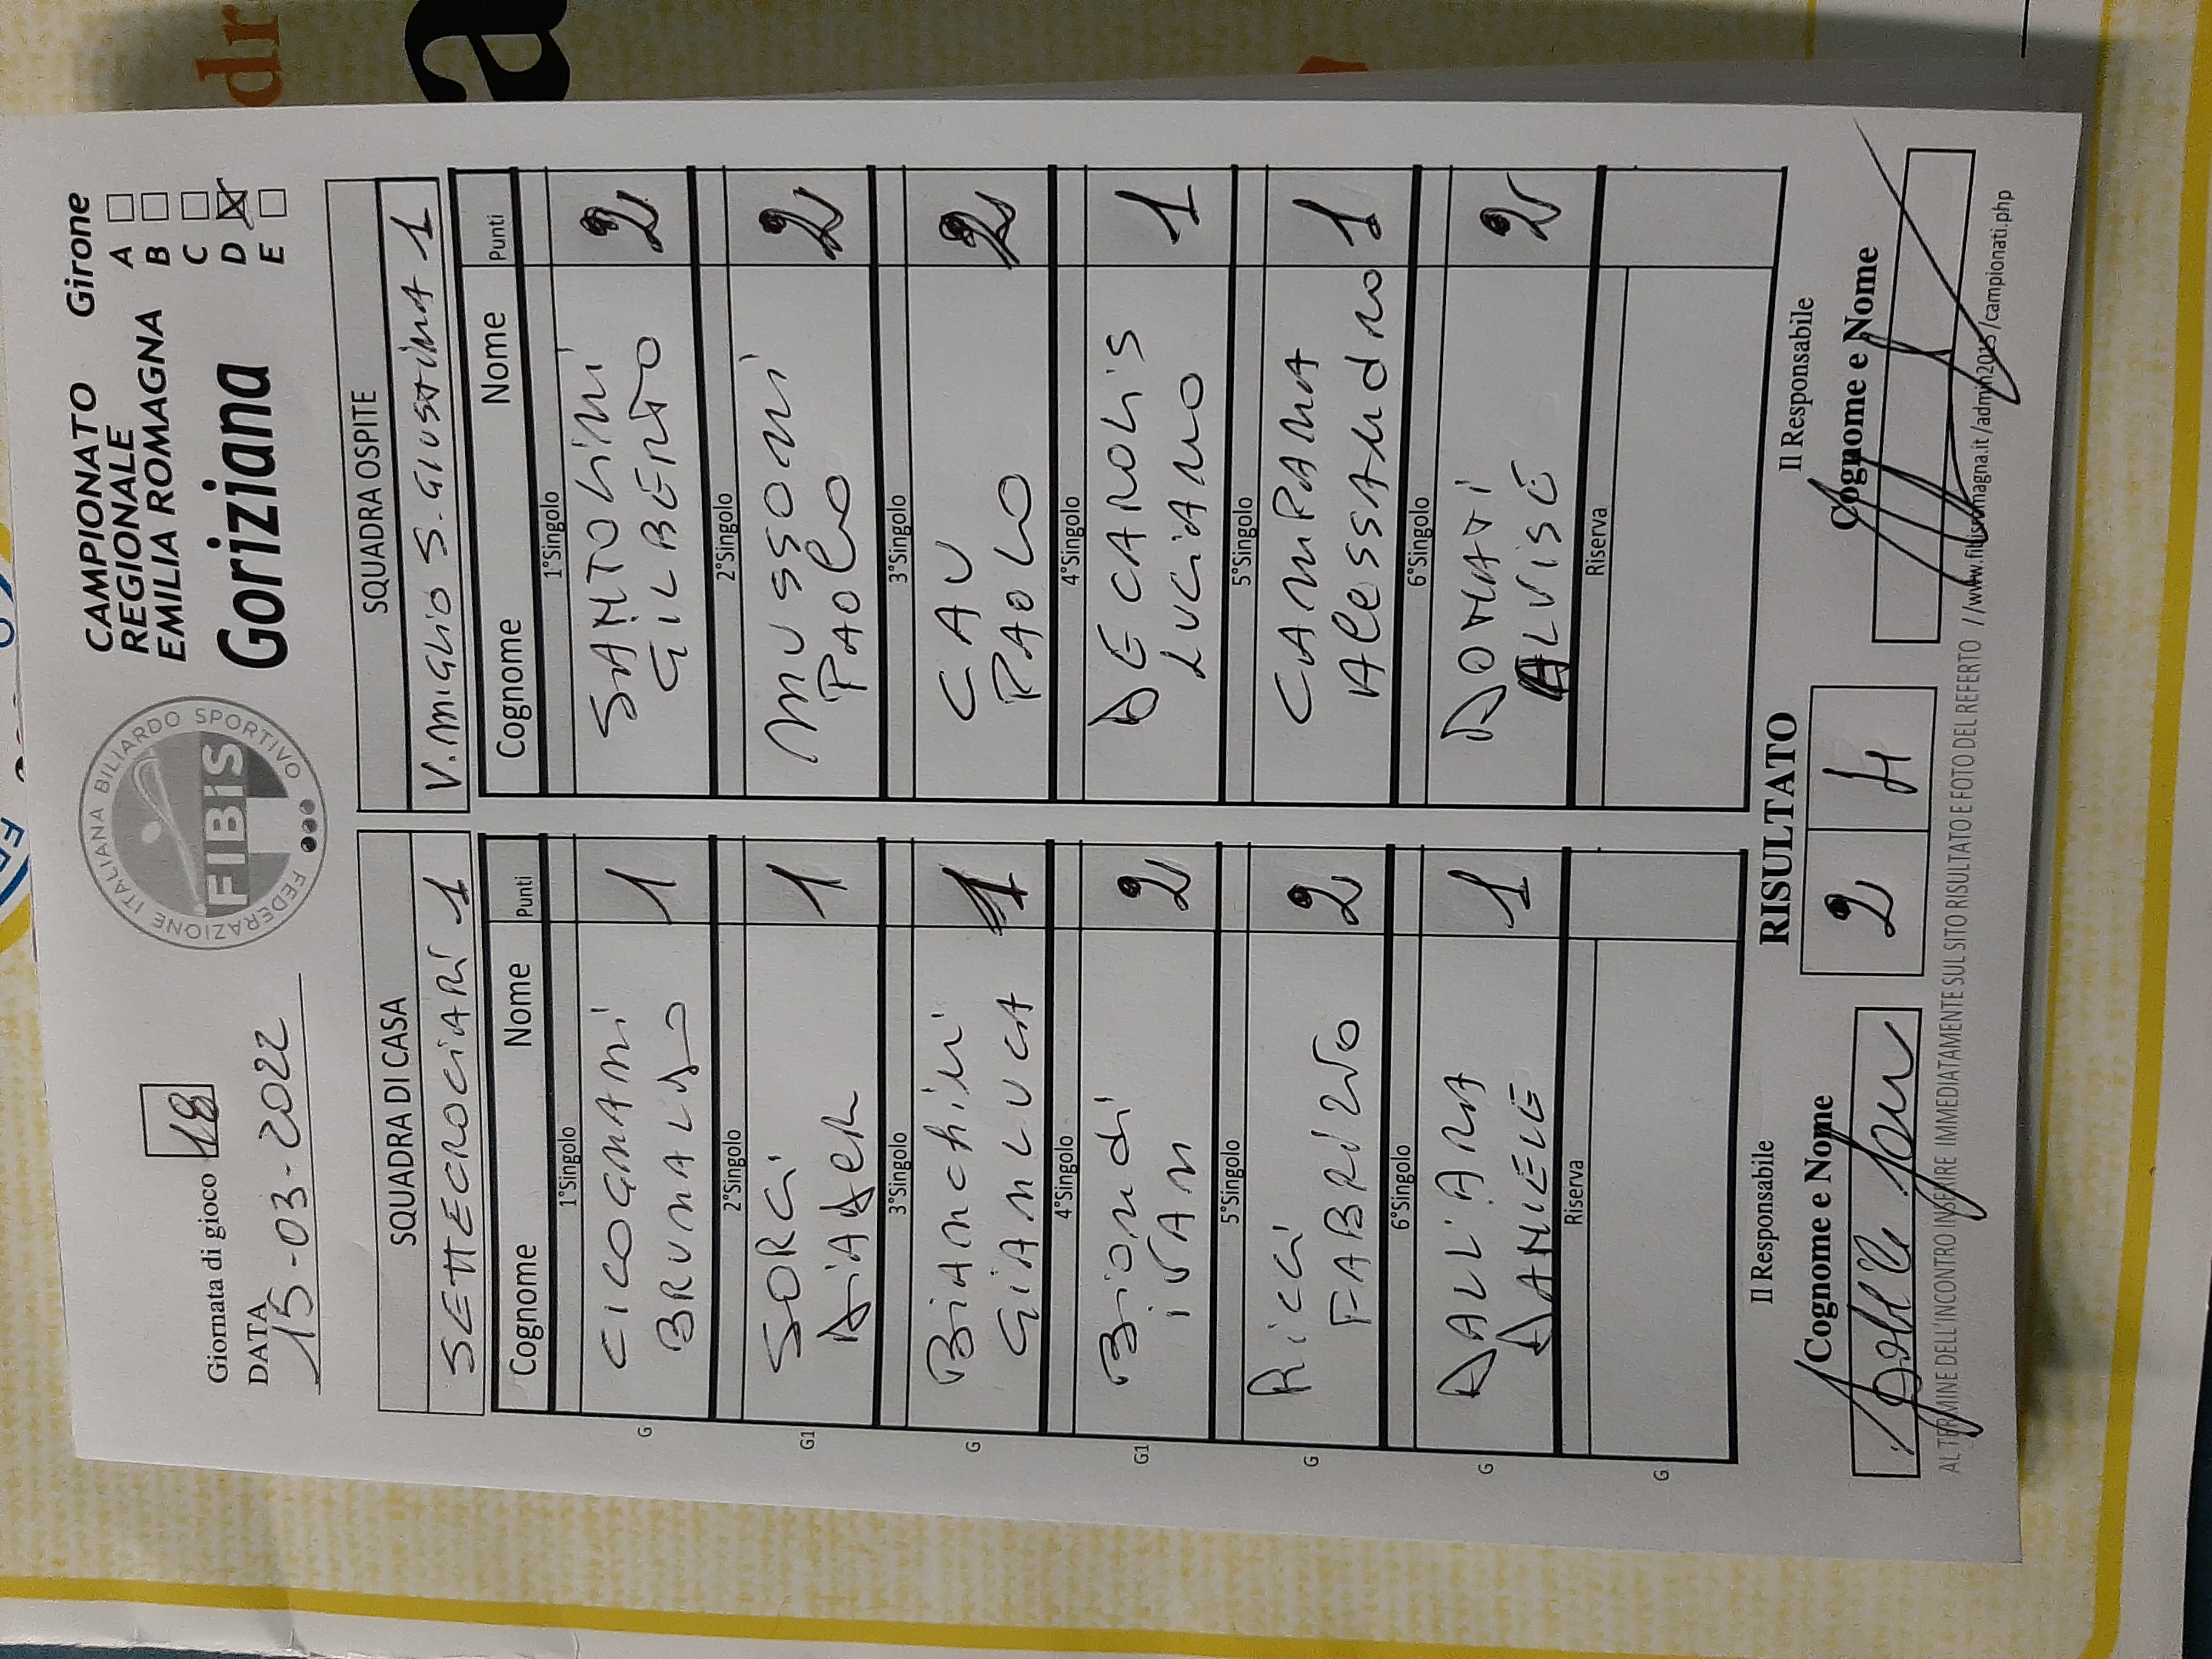 Giornata di gioco 18
DATA
15-03-2022
FEDERAZIONE ITALIANA BILIARDO SPORTIVO
FIBiS
CAMPIONATO
REGIONALE
EMILIA ROMAGNA
Goriziana
Girone
A
B
C
D
E
SQUADRA DI CASA
SETTECROCIARI 1
Cognome Nome Punti
1°Singolo
G
CICOGNANI 1
BRUNALDO
2°Singolo
G1
SORCI 1
DiADER
3°Singolo
G
BiANChiNi 1
GiANLUCA
4°Singolo
G1
Biondi 2
iVAN
5°Singolo
G
Ricci 2
FABRIZIO
6°Singolo
G
DALL'ARA 1
DANIELE
Riserva
G
SQUADRA OSPITE
V.MiGLiO S.GiUSTiNA 1
Cognome Nome Punti
1°Singolo
SANTOLiNi 2
GiLBERTO
2°Singolo
MUSSONi 2
PAOLO
3°Singolo
CAU 2
PAOLO
4°Singolo
DECAROLiS 1
LUCiANO
5°Singolo
CAMPANA 1
AleSSANdRO
6°Singolo
DONATi 2
ALViSE
Riserva
Il Responsabile
Cognome e Nome
RISULTATO
2 4
Il Responsabile
Cognome e Nome
AL TERMINE DELL'INCONTRO INSERIRE IMMEDIATAMENTE SUL SITO RISULTATO E FOTO DEL REFERTO //www.fibisromagna.it/admin2015/campionati.php
dr
a